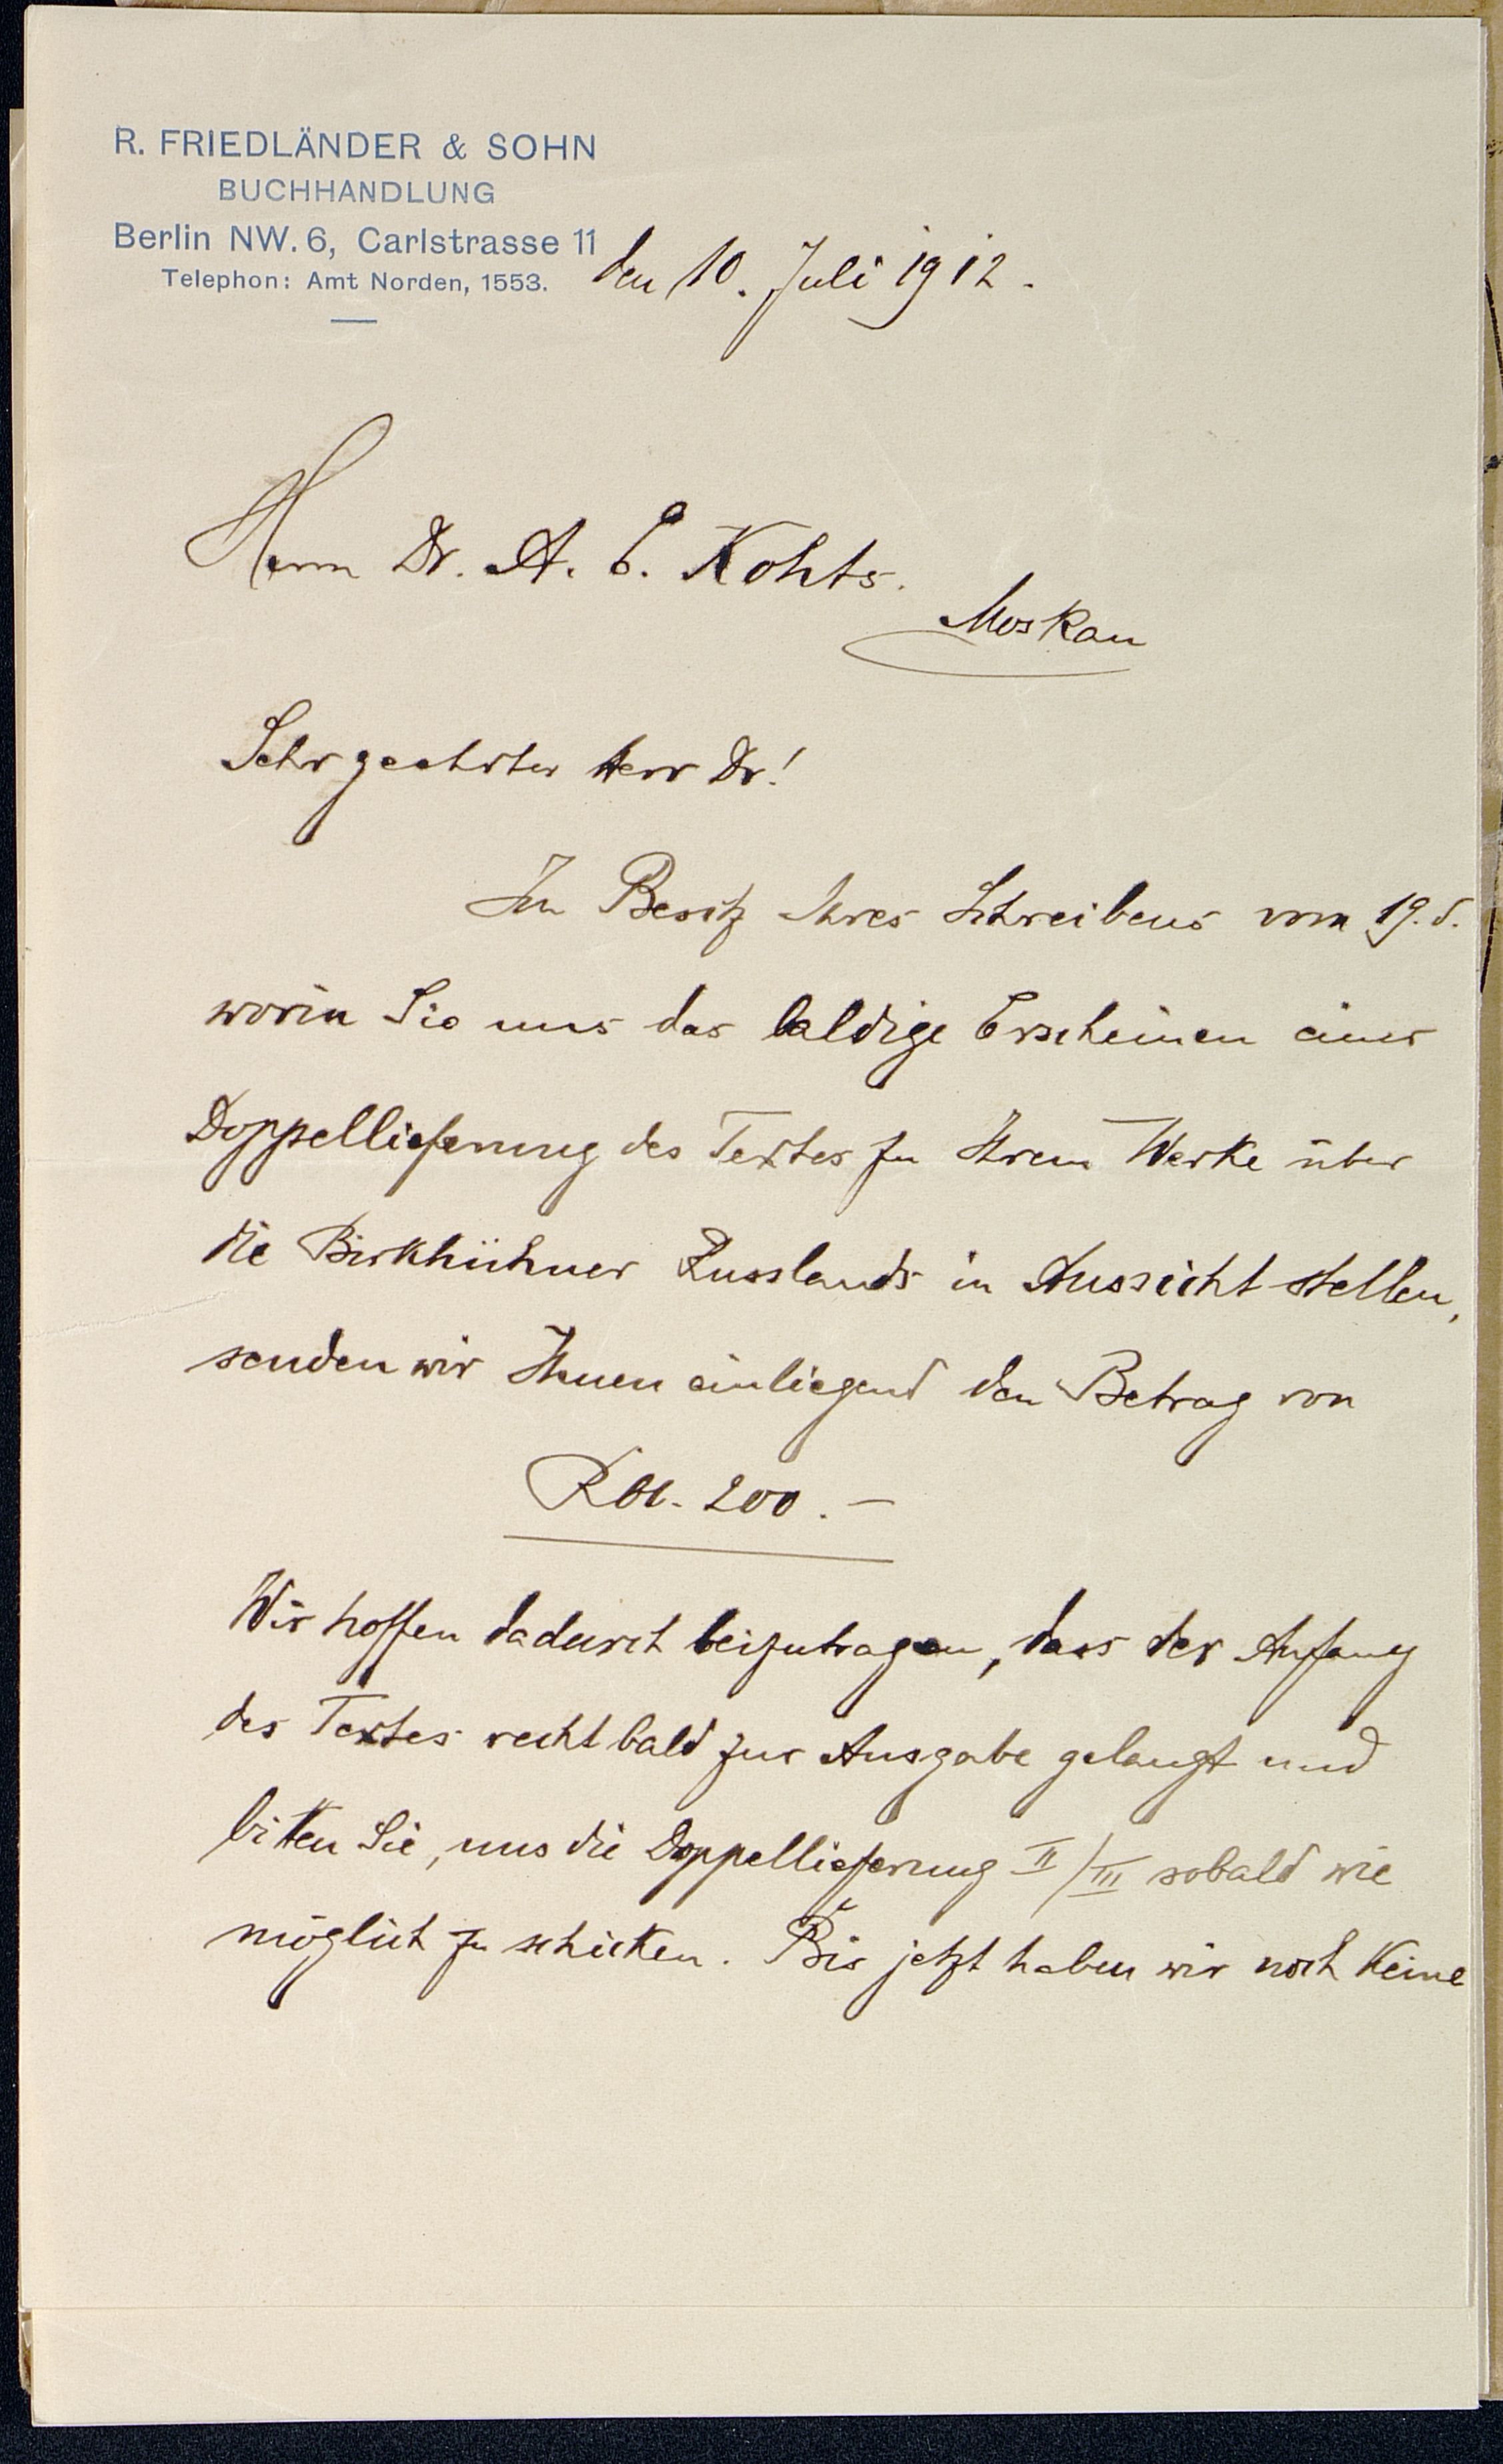 R. FRIEDLÄNDER & SOHN
BUCHHANDLUNG
Berlin NW. 6, Carlstrasse 11
Telephon: Amt Norden, 1553.
den 10. Juli 1912.
Herrn Dr. A. E. Kohts.
Moskau
Sehr geehrter Herr Dr!
Im Besitz Ihres Schreibens vom 19. d.
worin Sie uns das baldige Erscheinen einer
Doppellieferung des Textes zu Ihrem Werke über
die Birkhühner Russlands in Aussicht stellen,
senden wir Ihnen einliegend den Betrag von
Rbl. 200.—
Wir hoffen dadurch beizutragen, dass der Anfang
des Textes recht bald zur Ausgabe gelangt und
bitten Sie, uns die Doppellieferung II/III sobald wie
möglich zu schicken. Bis jetzt haben wir noch keine